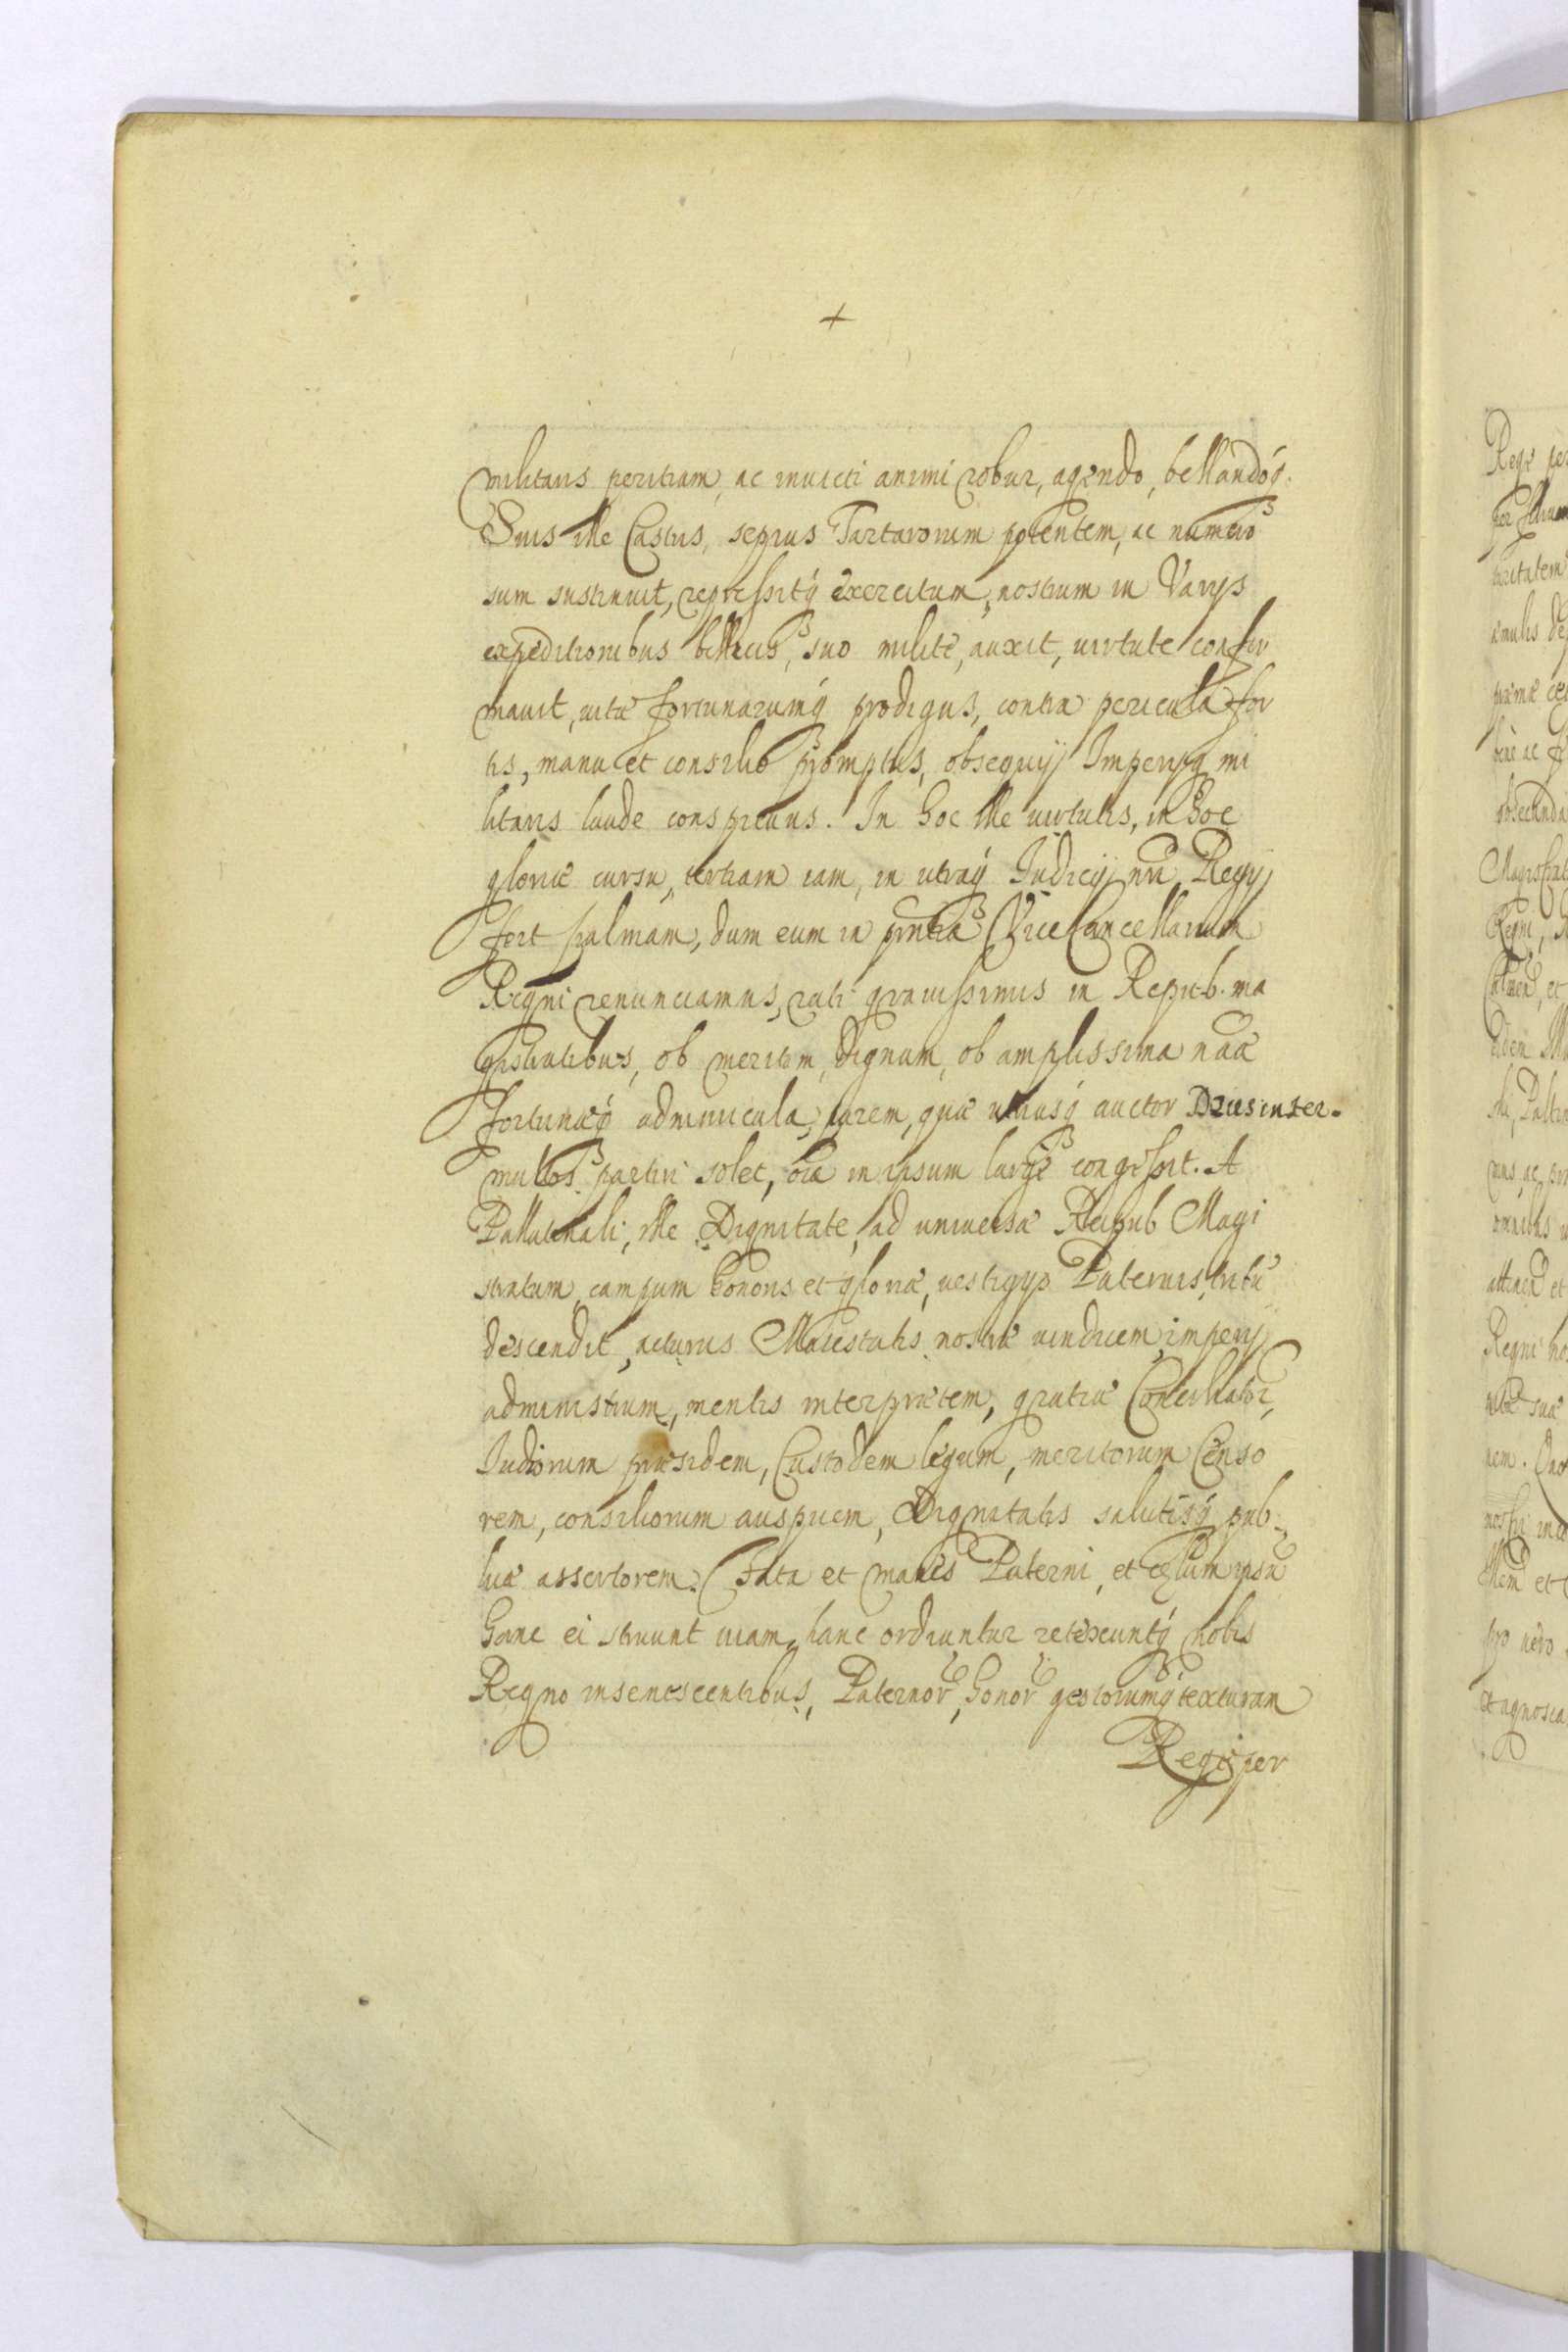 +
militaris peritiam, ac inuicti animi robur, agendo, bellandoq́.
Suis ille Castris, sepius Tartarorum potentem, ac numero
sum sustinuit, repressitq́ exercitum, nostrum in Varijs
expeditionibus bellicis, suo milite, auxit, uirtute confir
mauit, uitæ fortunarumq́ prodigus, contra pericula for
tis, manu et consilio promptus, obsequij Imperijq mi
litaris laude conspicuus. In hoc ille uirtutis, in hoc
gloriæ cursu, tertiam iam, in utraq́ Iudicij nri Regij
fert palmam, dum eum in pntia ViceCancellarium
Regni renunciamus, rati grauissimis in Repub. ma
gistratibus, ob meritum, dignum, ob amplissima naæ
fortunæq́ adminicula, parem, quæ utriusq́ auctor Deus inter
multos partiri solet, oia in ipsum large congessit. A
Pallatinali, ille Dignitate, ad uniuersæ Reipub Magi
stratum, campum honoris et gloriæ, uestigijs Paternis tritu
descendit, acturus Maiestatis nostræ uindicem, imperij
administrum, mentis interpretem, gratiæ Conciliator,
Iudiorum præsidem, Custodem legum, meritorum Censo
rem, consiliorum auspicem, Dignitatis salutisq́ pub:
licæ assertorem. Fata et manes Paterni, et cælum ipsu
hanc ei struunt uiam, hanc ordiuntur retexuntq́ nobis
Regno insenescentibus, Paternor, honor gestorumq́ texturam
Regis per

Rege per
per filium
turitatem
æmulis de
bene ac f
obsecunda
Magistrat
Regni,
et
omnibus
et
Regni ho
suæ
nem.
et
pro uero
et agnosca